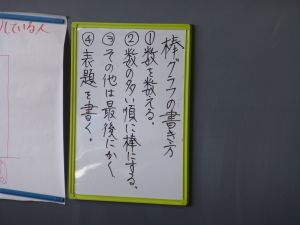 棒グラフの書き方
①数を数える。
②数の多い順に棒にする。
③その他は最後にかく。
④表題を書く。
している人